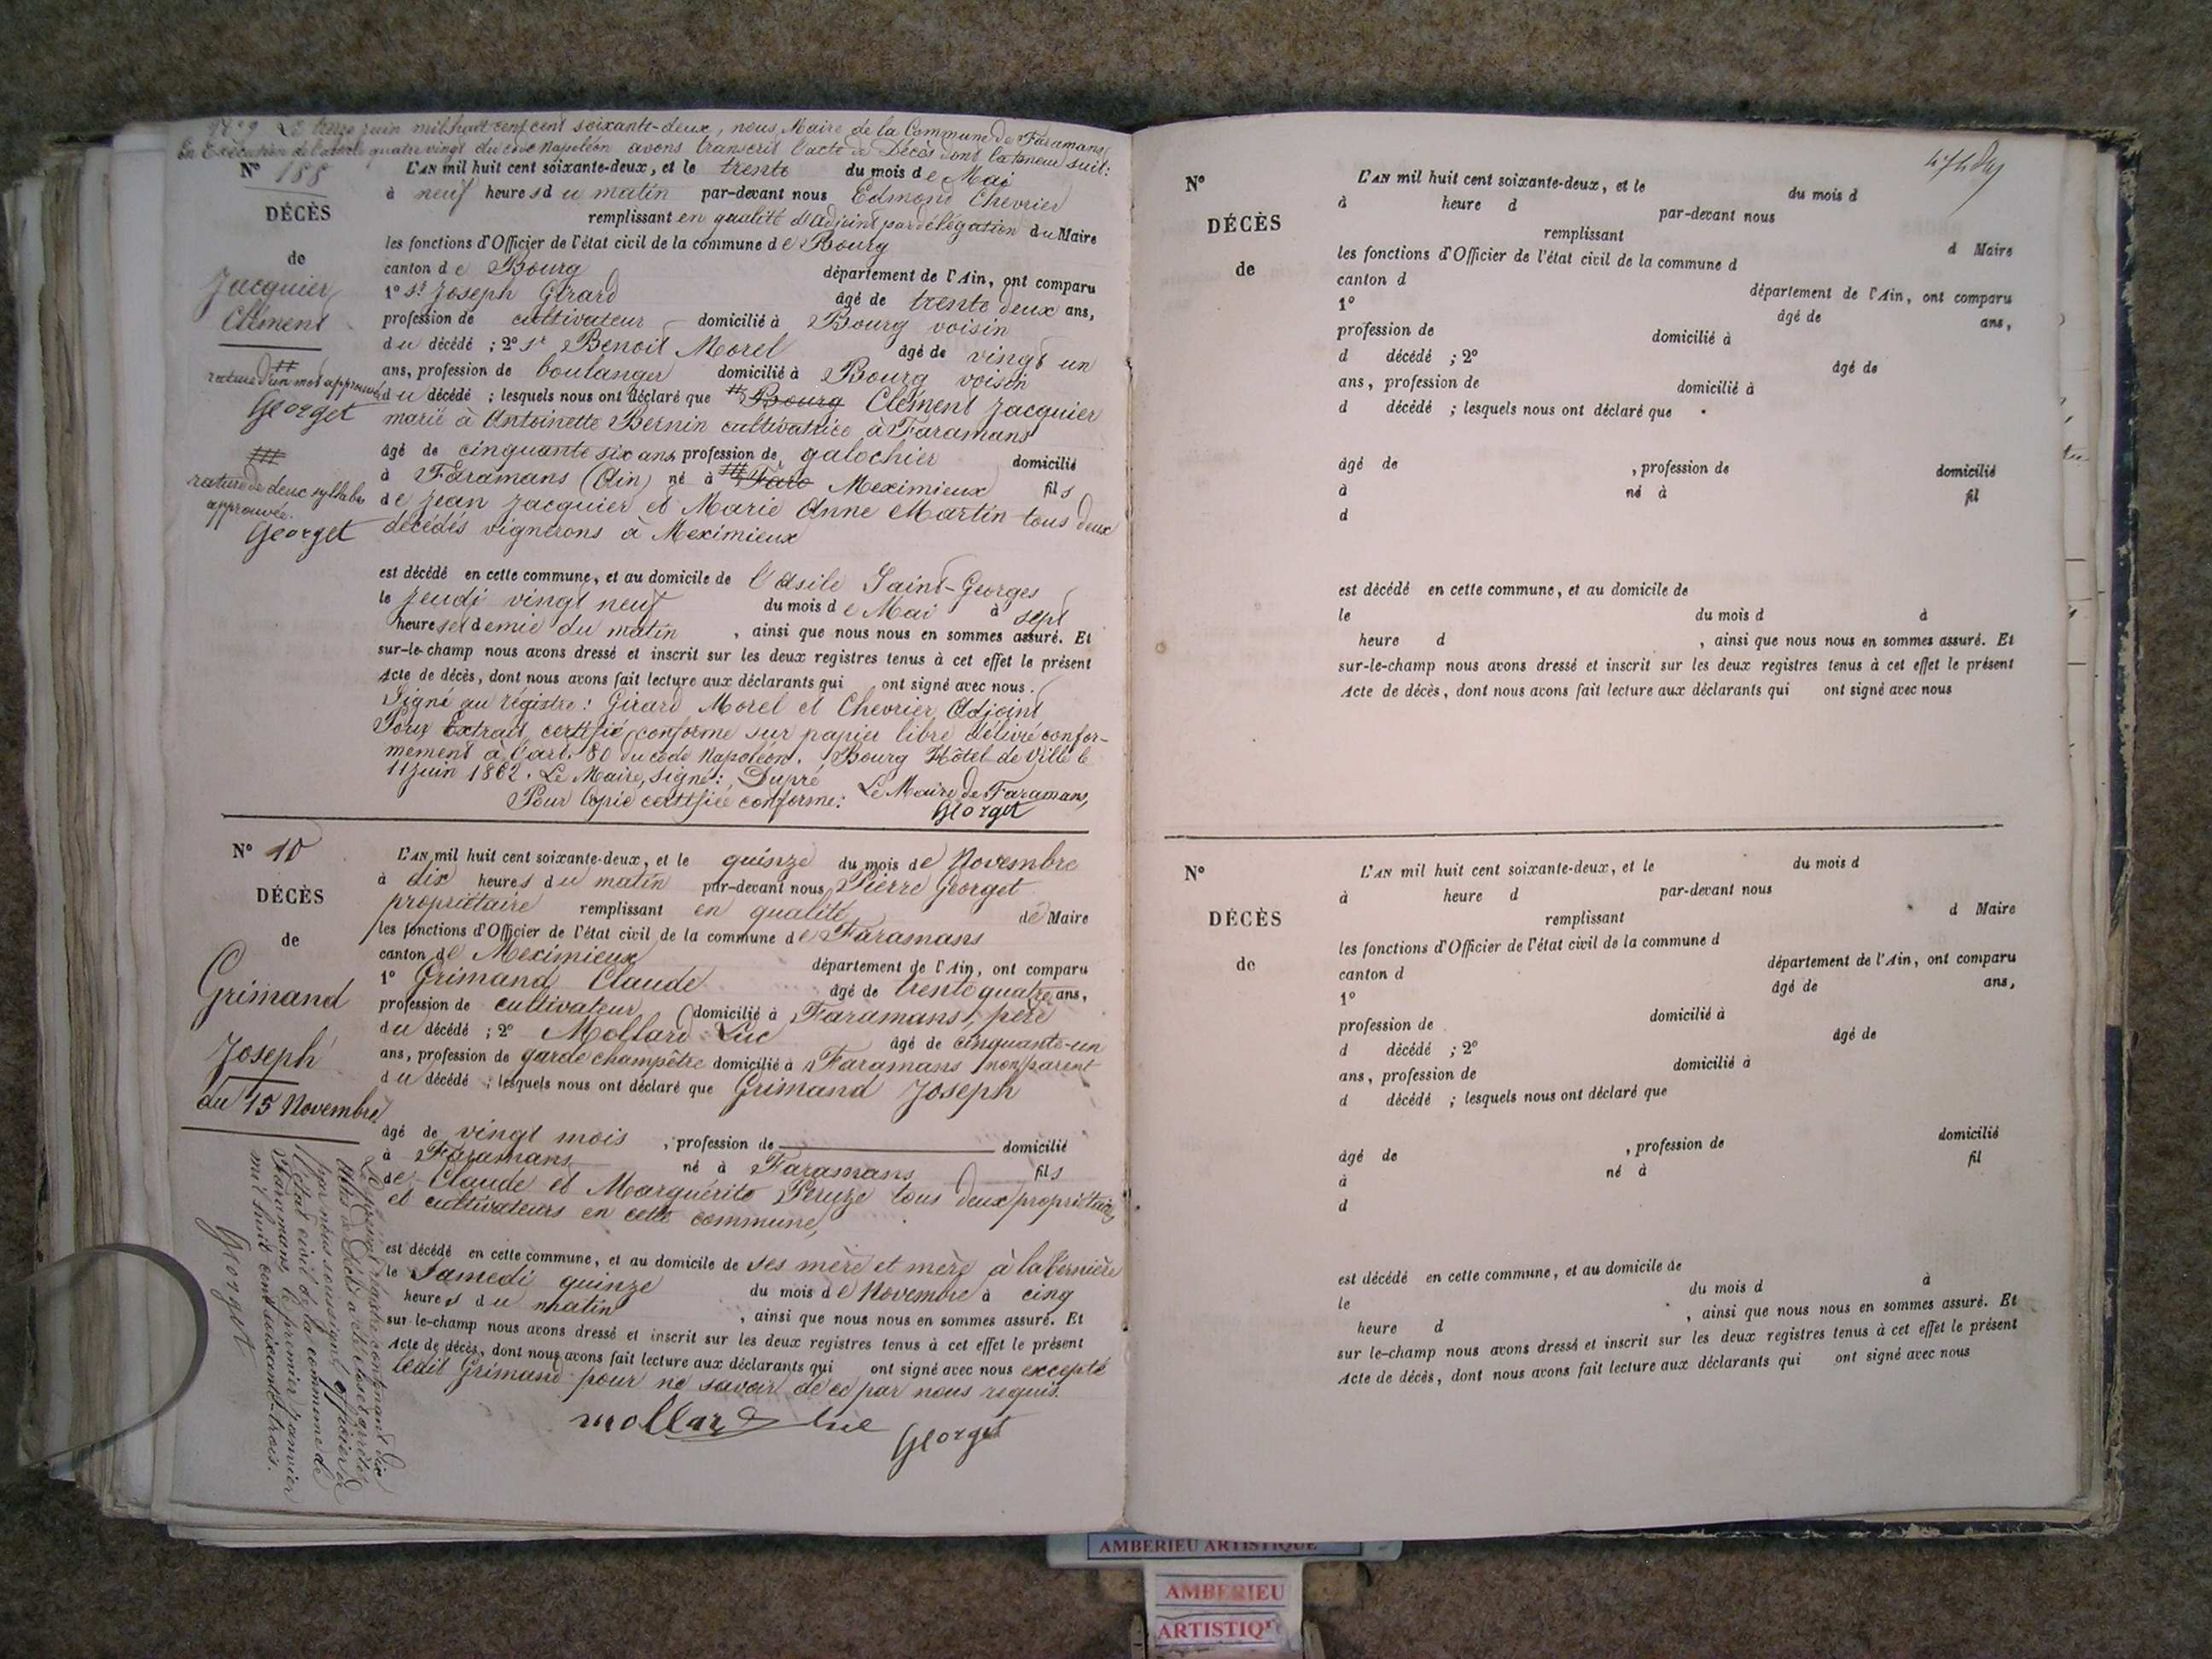 N° 9 Le treize juin mil huit cent cent soixante-deux, nous, Maire de la Commune de Faramans,
En Exécution de l'article quatre vingt du code Napoléon avons transcrit l'acte de Décès dont la teneur suit:
N° 188
DÉCÈS
de
Jacquier
Clément
rature d'un mot approuvé
Georget
rature de deux syllabes
approuvée.
Georget
L'AN mil huit cent soixante-deux, et le trente du mois de Mai
à neuf heures du matin par-devant nous Edmond Chevrier
remplissant en qualité d'adjoint par délégation du Maire
les fonctions d'Officier de l'état civil de la commune de Bourg
canton de Bourg département de l'Ain, ont comparu
1° Sr Joseph Girard âgé de trente deux ans,
profession de cultivateur domicilié à Bourg voisin
du décédé ; 2° sr Benoit Morel âgé de vingt un
ans, profession de boulanger domicilié à Bourg voisin
du décédé ; lesquels nous ont déclaré que Bourg Clément Jacquier
marié à Antoinette Bernin cultivatrice à Faramans
âgé de cinquante six ans profession de galochier domicilié
à Faramans (Ain) né à Fara Meximieux fils
de Jean Jacquier et Marie Anne Martin tous deux
décédés vignerons à Meximieux
est décédé en cette commune, et au domicile de l'Asile Saint-Georges
le Jeudi vingt neuf du mois de Mai à sept
heures et demie du matin , ainsi que nous nous en sommes assuré. Et
sur-le-champ nous avons dressé et inscrit sur les deux registres tenus à cet effet le présent
Acte de décès, dont nous avons fait lecture aux déclarants qui ont signé avec nous.
Signé au régistre: Girard Morel et Chevrier, Adjoint
Pour Extrait certifié conforme sur papier libre délivré confor-
mément à l'art. 80 du code Napoléon. Bourg Hôtel de Ville le
11 Juin 1862. Le Maire, signé: Dupré
Pour Copie certifiée conforme: Le Maire de Faramans,
Georget
N° 10
DÉCÈS
de
Grimand
Joseph
du 15 Novembre
L'AN mil huit cent soixante-deux, et le quinze du mois de Novembre
à dix heures du matin par-devant nous Pierre Georget
propriétaire remplissant en qualité de Maire
les fonctions d'Officier de l'état civil de la commune de Faramans
canton de Meximieux département de l'Ain, ont comparu
1° Grimand Claude âgé de trente quatre ans,
profession de cultivateur domicilié à Faramans, père
du décédé ; 2° Mollard Luc âgé de cinquante-un
ans, profession de garde champêtre domicilié à Faramans non parent
du décédé ; lesquels nous ont déclaré que Grimand Joseph
âgé de vingt mois , profession de domicilié
à Faramans né à Faramans fils
de Claude et Marguérite Peruze tous deux propriétaires
et cultivateurs en cette commune,
est décédé en cette commune, et au domicile de ses mère et mère à la
le Samedi quinze du mois de Novembre à cinq
heures du matin , ainsi que nous nous en sommes assuré. Et
sur le-champ nous avons dressé et inscrit sur les deux registres tenus à cet effet le présent
Acte de décès, dont nous avons fait lecture aux déclarants qui ont signé avec nous excepté
ledit Grimand pour ne savoir de ce par nous requis.
mollard luc
Georget
Le présent régistre contenant dix
Actes de Décès a été clos et arrêté
par nous soussigné officier de
l'état civil de la commune de
Faramans, le premier janvier
mil huit cent soixante-trois.
Georget
N°
DÉCÈS
de
L'AN mil huit cent soixante-deux, et le du mois d
à heure d par-devant nous
remplissant d Maire
les fonctions d'Officier de l'état civil de la commune d
canton d département de l'Ain, ont comparu
1° âgé de ans,
profession de domicilié à
d décédé ; 2° âgé de
ans, profession de domicilié à
d décédé ; lesquels nous ont déclaré que
âgé de , profession de domicilié
à né à fil
d
est décédé en cette commune, et au domicile de
le du mois d à
heure d , ainsi que nous nous en sommes assuré. Et
sur-le-champ nous avons dressé et inscrit sur les deux registres tenus à cet effet le présent
Acte de décès, dont nous avons fait lecture aux déclarants qui ont signé avec nous
N°
DÉCÈS
de
L'AN mil huit cent soixante-deux, et le du mois d
à heure d par-devant nous
remplissant d Maire
les fonctions d'Officier de l'état civil de la commune d
canton d département de l'Ain, ont comparu
1° âgé de ans,
profession de domicilié à
d décédé ; 2° âgé de
ans, profession de domicilié à
d décédé ; lesquels nous ont déclaré que
âgé de , profession de domicilié
à né à fil
d
est décédé en cette commune, et au domicile de
le du mois d à
heure d , ainsi que nous nous en sommes assuré. Et
sur le-champ nous avons dressé et inscrit sur les deux registres tenus à cet effet le présent
Acte de décès, dont nous avons fait lecture aux déclarants qui ont signé avec nous
AMBERIEU ARTISTIQUE
AMBERIEU
ARTISTIQU